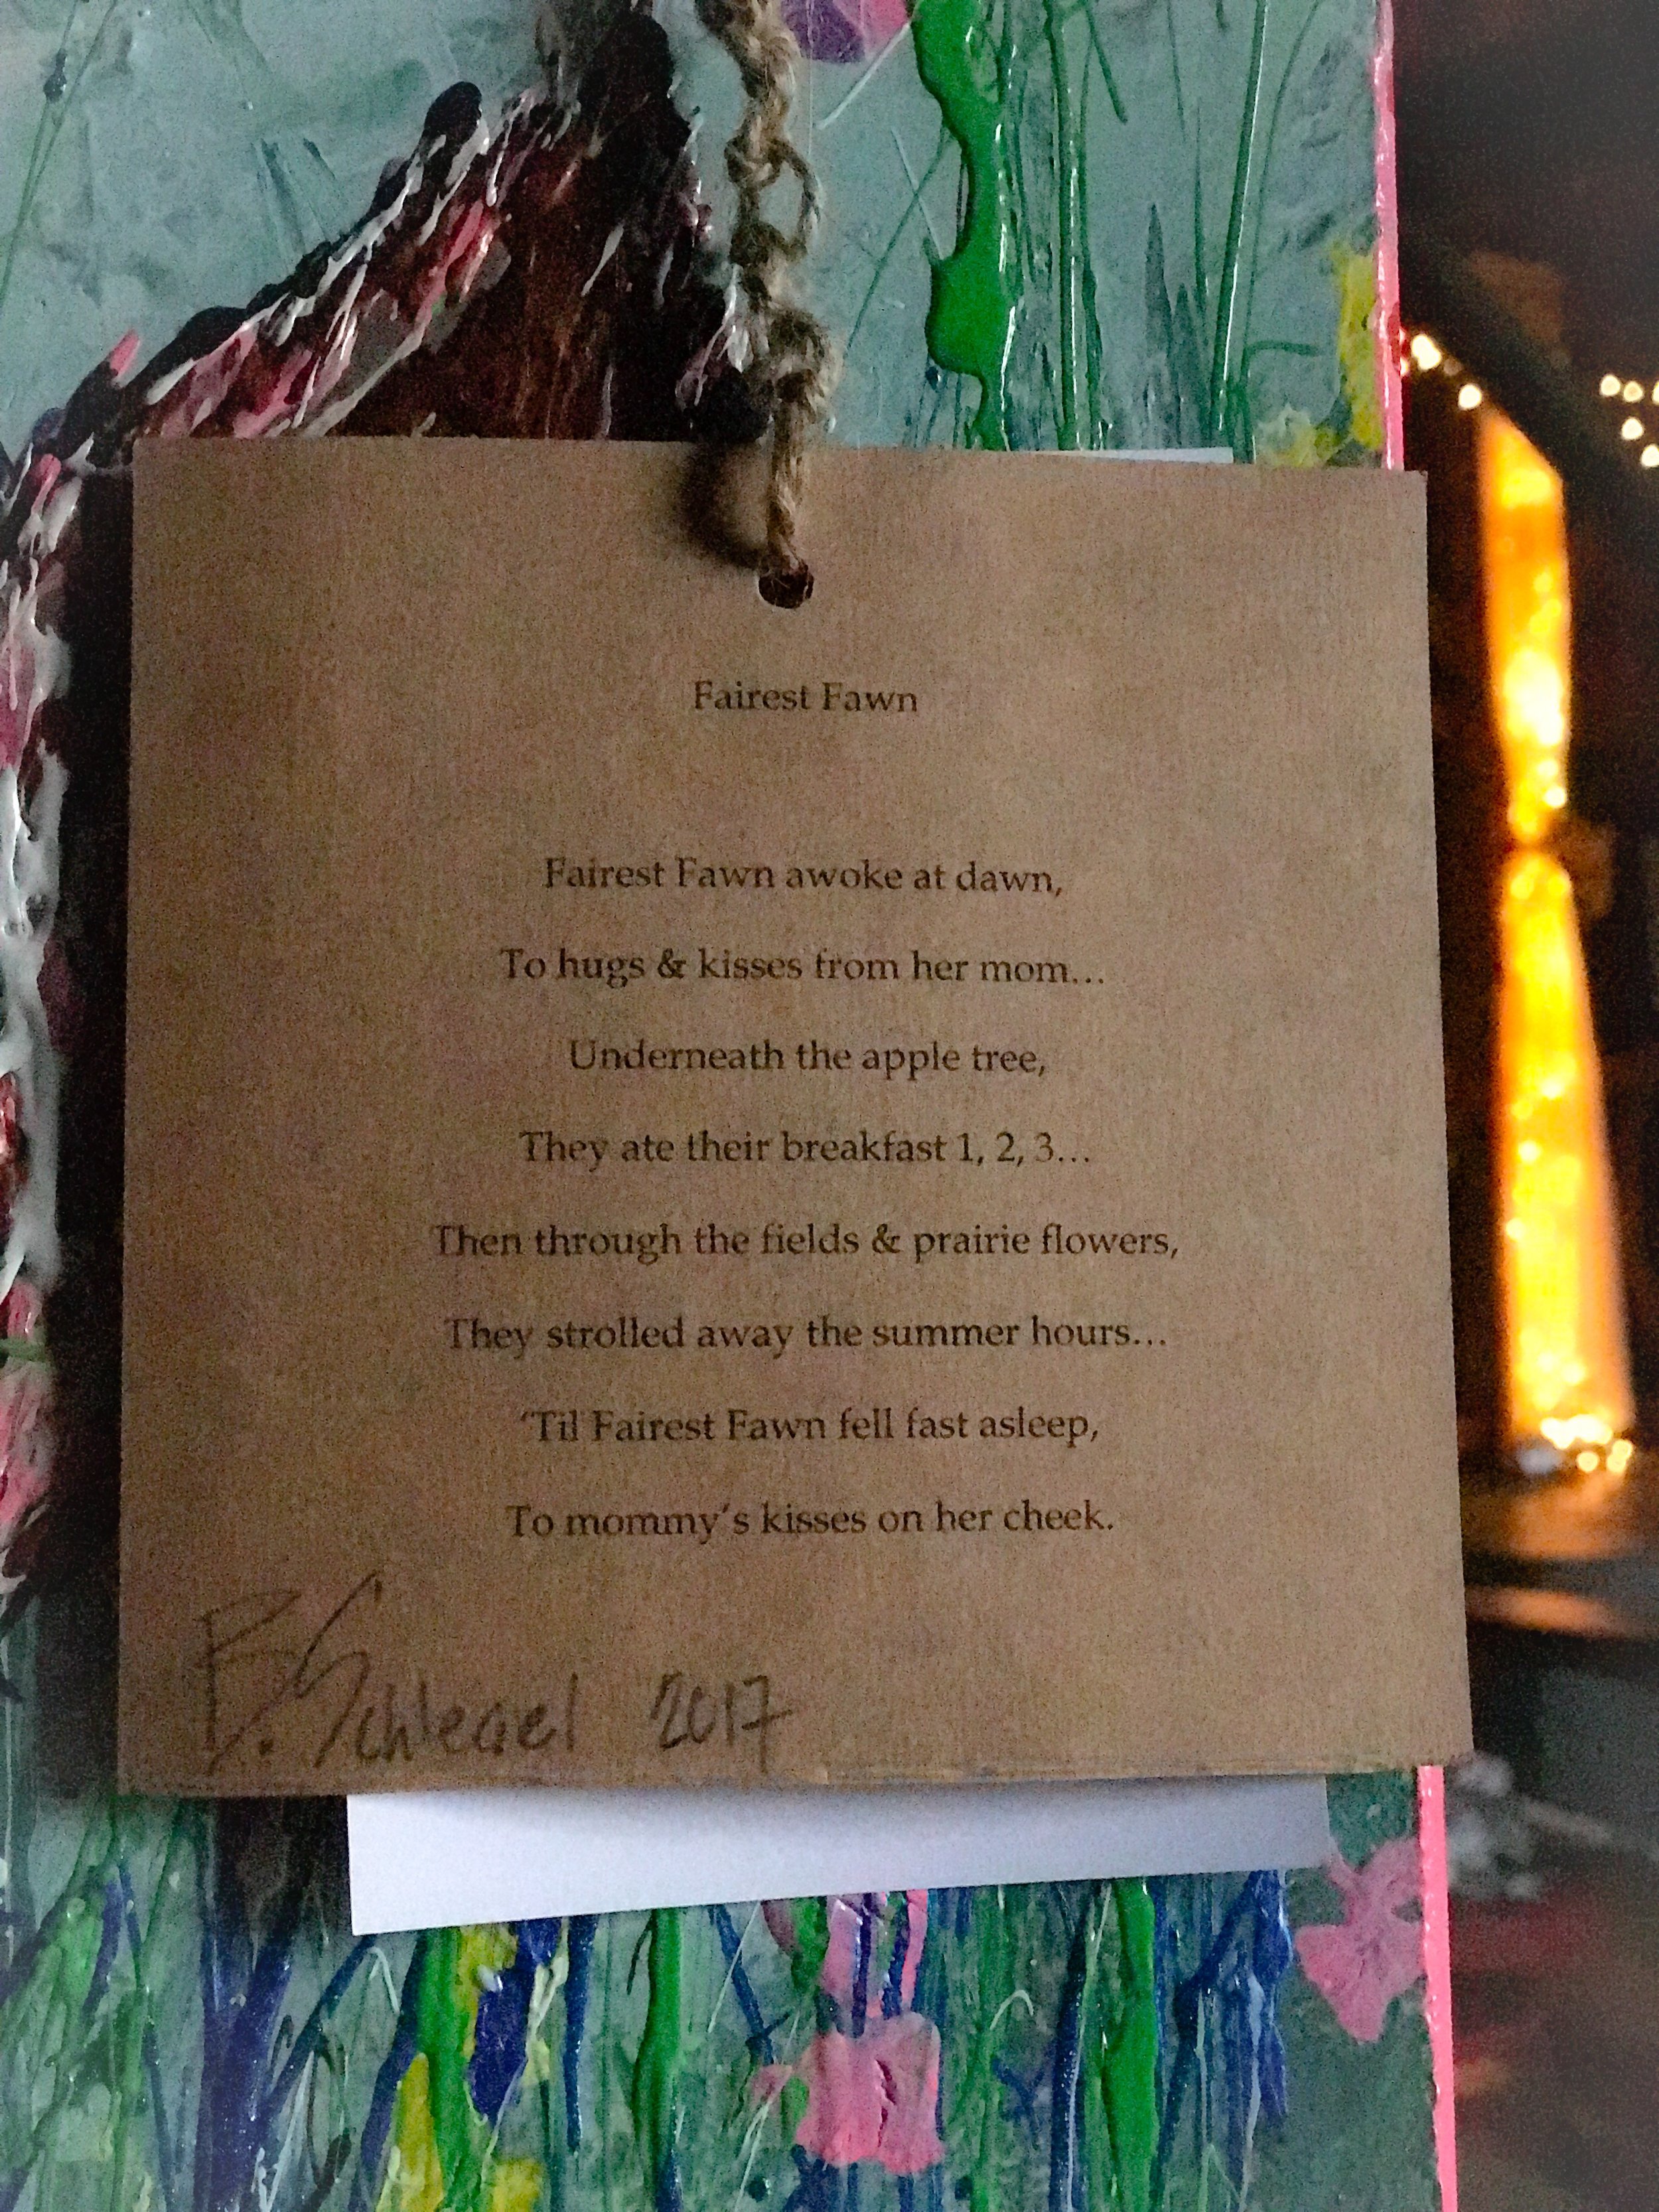 Fairest Fawn
Fairest Fawn awoke at dawn,
To hugs & kisses from her mom…
Underneath the apple tree,
They ate their breakfast 1, 2, 3…
Then through the fields & prairie flowers,
They strolled away the summer hours…
‘Til Fairest Fawn fell fast asleep,
To mommy’s kisses on her cheek.
B. Schlegel 2017